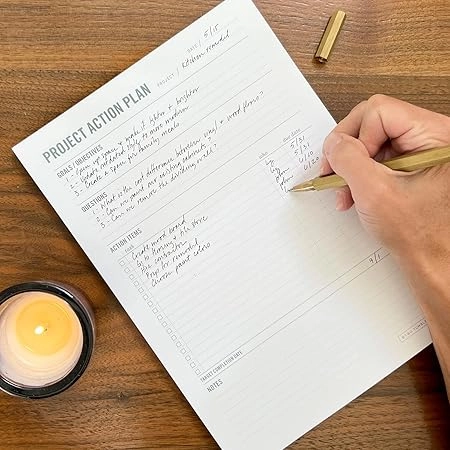 PROJECT ACTION PLAN
DATE / 5/15
PROJECT / Kitchen remodel
GOALS / OBJECTIVES
1 - Open up space & make it lighter & brighter
2 - Update outdated style to more modern
3 - Create a space for family meals
QUESTIONS
1 - What is the cost difference between vinyl & wood floors?
2 - Can we paint our existing cabinets?
3 - Can we remove the dividing wall?
ACTION ITEMS
DUE DATE
Create mood board 5/31
Go to flooring & tile store 5/31
Hire contractor 6/10
Prep for remodel 6/20
Choose paint colors
TARGET COMPLETION DATE 9/1
NOTES